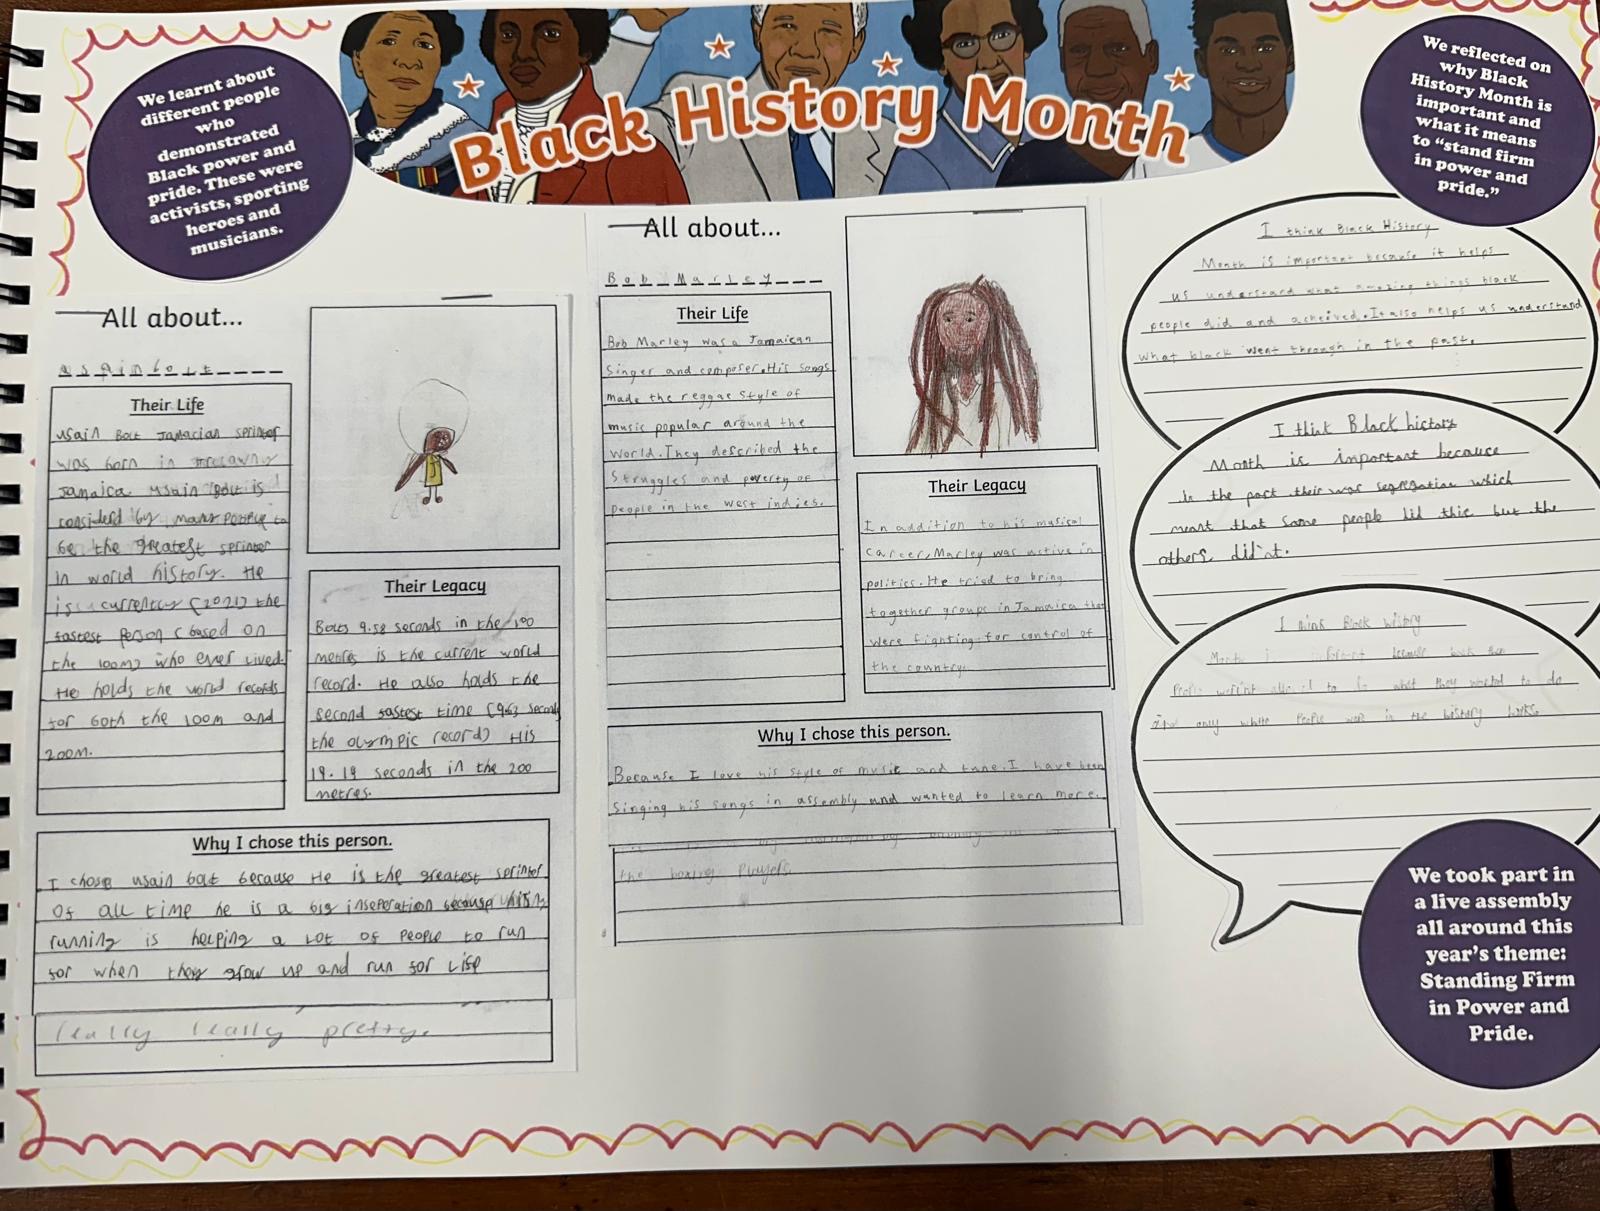 Black History Month
We learnt about
different people
who
demonstrated
Black power and
pride. These were
activists, sporting
heroes and
musicians.
We reflected on
why Black
History Month is
important and
what it means
to "stand firm
in power and
pride."
All about...
usain bolt
Their Life
usain Bolt Jamacian sprinter
was born in
Jamaica usain Bolt is
considerd by many people to
be the greatest sprinter
in world history. He
is currently (2021) the
fastest person (based on
the 100m) who ever lived.
He holds the world records
for both the 100m and
200m.
Their Legacy
Bolts 9.58 seconds in the 100
metres is the current world
record. He also holds the
second fastest time (9.63 seconds
the olympic record) His
19.19 seconds in the 200
metres.
Why I chose this person.
I chose usain bolt because He is the greatest sprinter
of all time he is a big inseperation because
running is helping a lot of people to run
for when they grow up and run for life
really really pretty.
All about...
Bob Marley
Their Life
Bob Marley was a Jamaican
Singer and composer. His songs
made the reggae style of
music popular around the
world. They described the
Struggles and poverty of
people in the west indies.
Their Legacy
In addition to his musical
career, Marley was active in
politics. He tried to bring
together groups in Jamaica that
were fighting for control of
the country.
Why I chose this person.
Because I love his style of music and tune. I have been
Singing his songs in assembly and wanted to learn more.
the boxing Players
I think Black History
Month is important because it helps
us understand what amazing things black
people did and acheived. It also helps us understand
what black went through in the past.
I think Black history
Month is important because
in the past their was segregation which
meant that some people did this but the
others did'nt.
I think Black history
Month is because back then
People werin't allowed to do what they wanted to do
and only white People were in the history books.
We took part in
a live assembly
all around this
year's theme:
Standing Firm
in Power and
Pride.